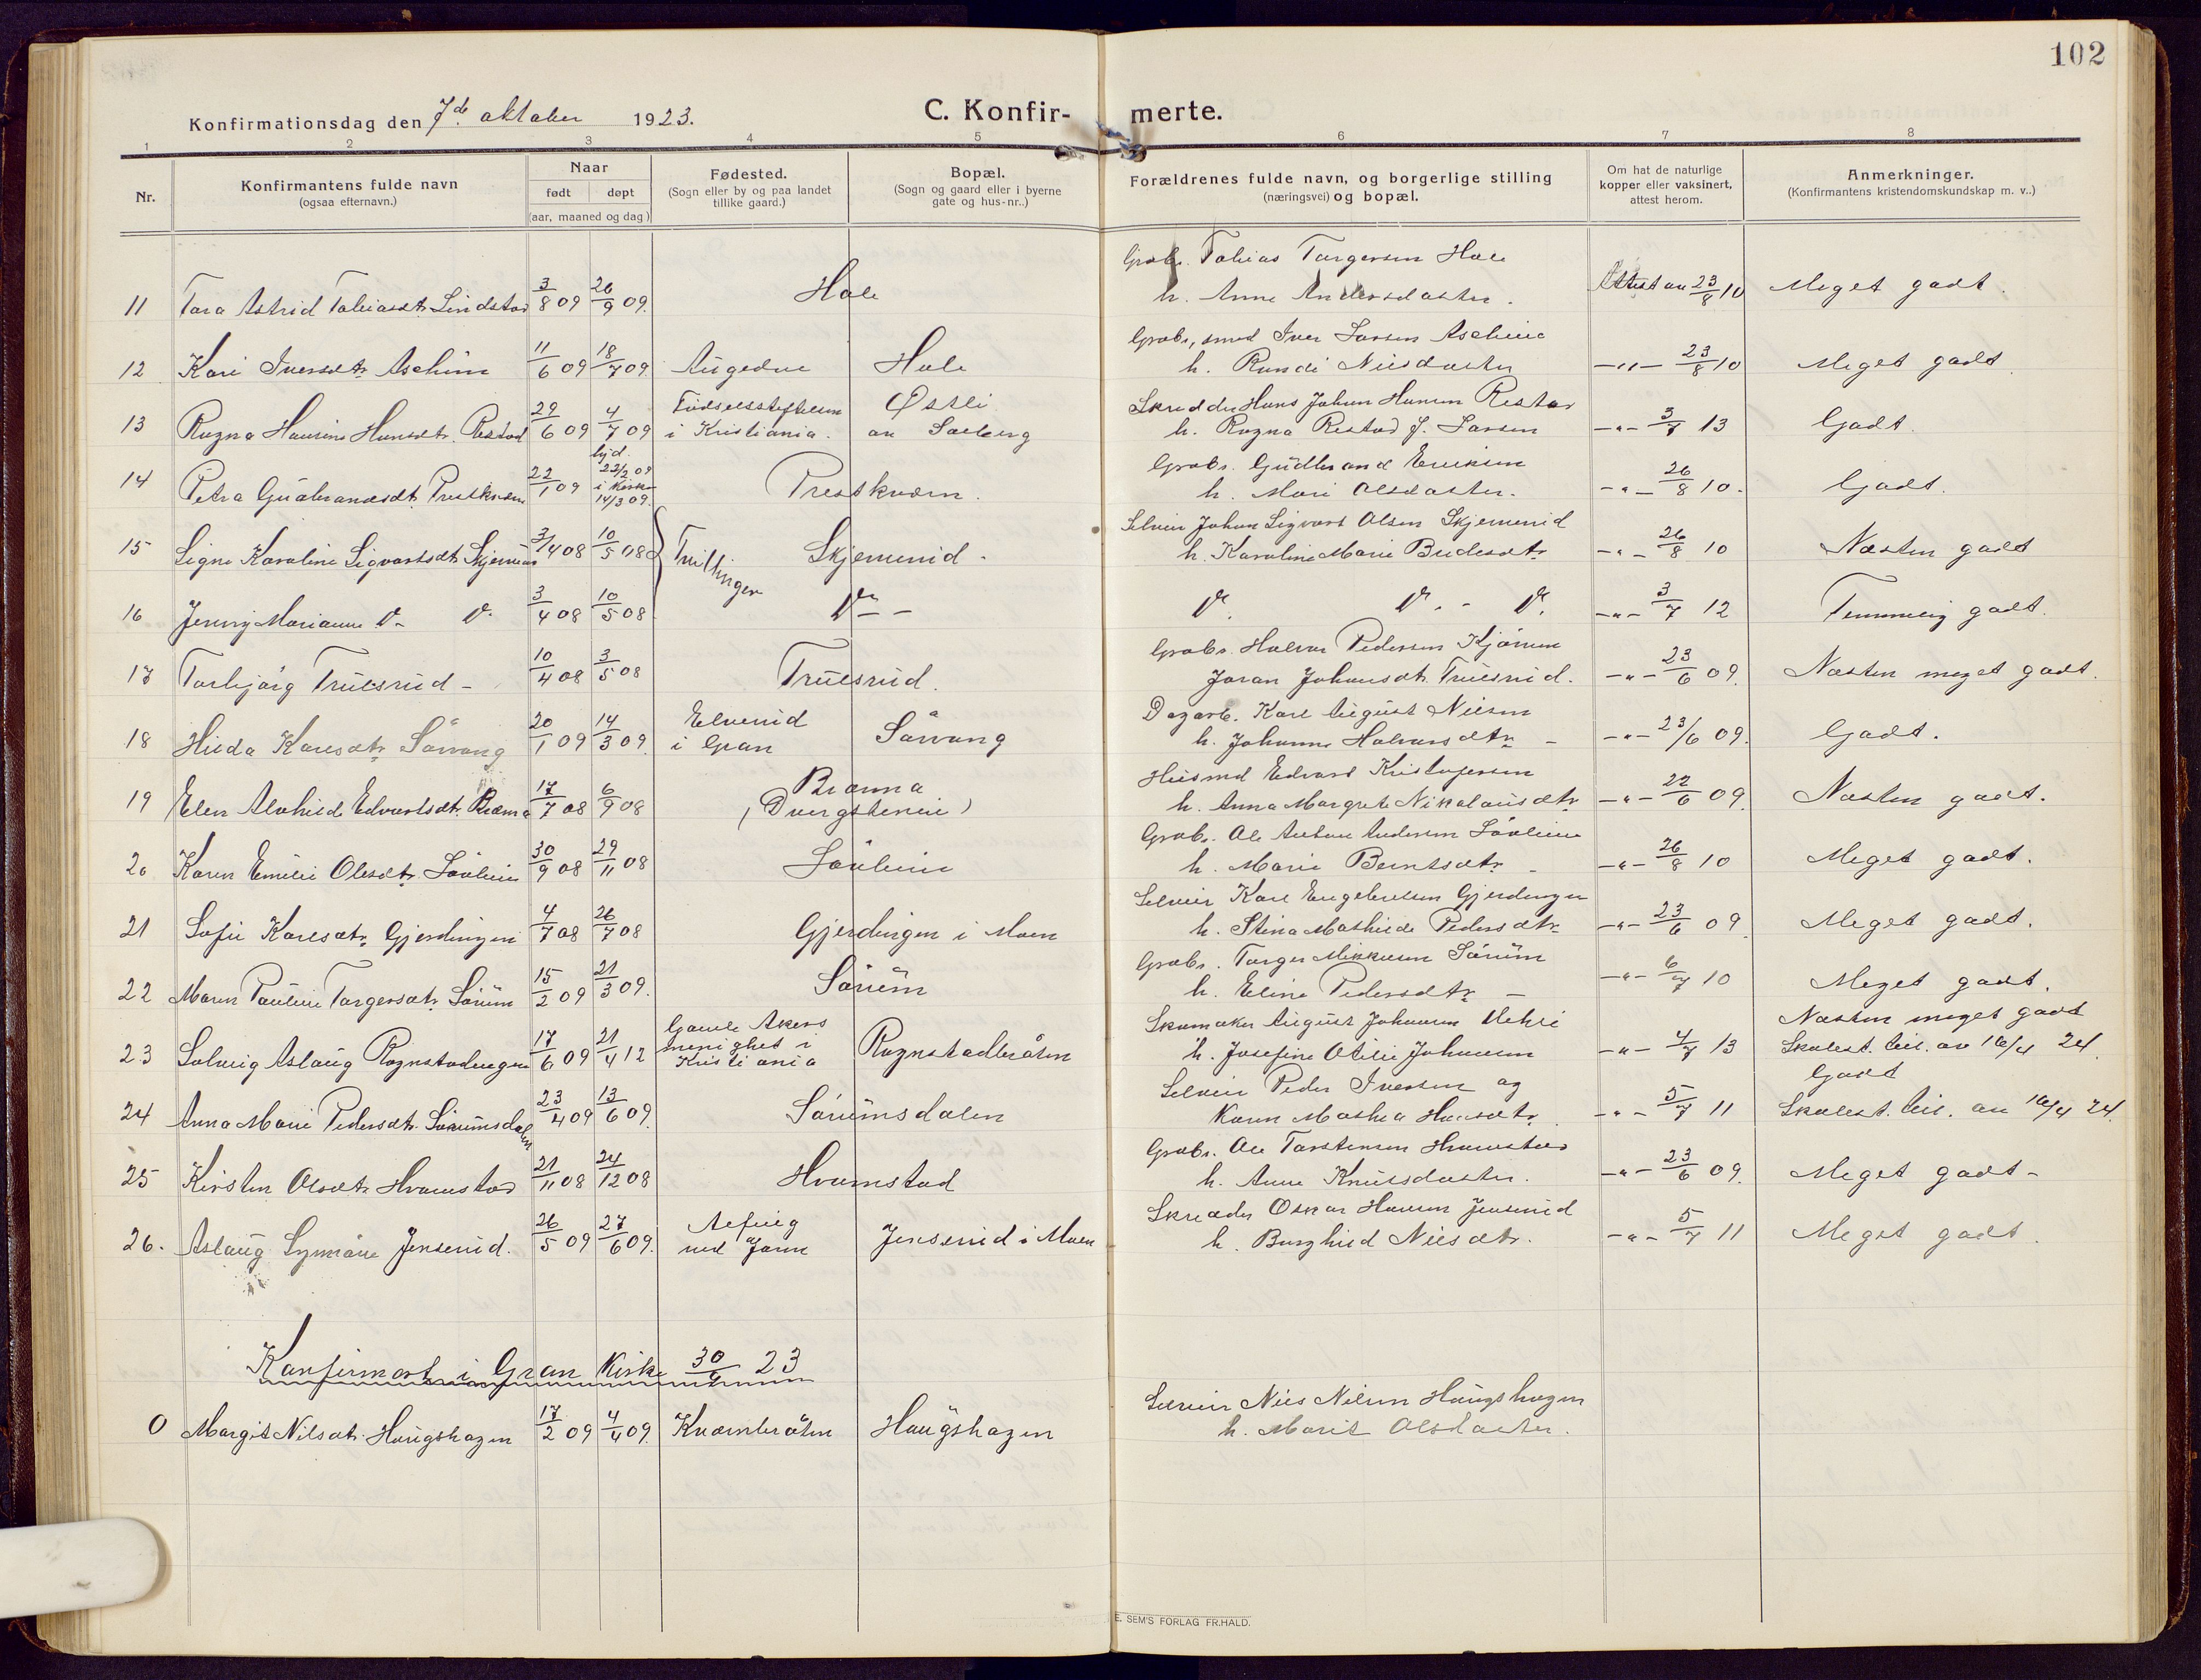 102
Konfirmationsdag den 7de oktober 1923.
C. Konfir- merte.
1 2 3 4 5 6 7 8
Nr.
Konfirmantens fulde navn
(ogsaa efternavn.)
Naar
født døpt
(aar, maaned og dag)
Fødested.
(Sogn eller by og paa landet
tillike gaard.)
Bopæl.
(Sogn og gaard eller i byerne
gate og hus-nr..)
Forældrenes fulde navn, og borgerlige stilling
(næringsvei) og bopæl.
Om hat de naturlige
kopper eller vaksinert,
attest herom.
Anmerkninger.
(Konfirmantens kristendomskundskap m. v..)
Grdbr. Tobias Torgersen Hole
11 Tora Astrid Tobiasdtr. Lindstad 3/8 09 26/9 09. Hole h. Anne Andersdatter. Attest av 23/8 10 Meget godt.
Grdbr., smed Iver Larsen Aschim
12 Kari Iversdtr. Aschim 11/6 09 18/7 09. Augedue Hole h. Randi Nilsdatter -"- 23/8 10 Meget godt.
Skrædder Hans Johan Hansen Restad
13 Ragna Hansine Hansdtr. Restad 29/6 09 4/7 09 Fødselsstiftelsen i Kristiania. Østli av Solberg h. Ragna Restad f. Larsen -"- 3/7 13 Godt.
Grdbr. Gudbrand Eriksen
14 Petra Gudbrandsdt. Prestkværn 22/1 09 hjd. 22/2 09 i kirke 14/3 09. Prestkværn. h. Mari Olsdatter. -"- 26/8 10. Godt.
Selveier Johan Sigvart Olsen Skjerverud
15 Signe Karoline Sigvartsdt. 3/4 08 10/5 08 Tvillinger h. Karoline Marie -"- 26/8 10 Næsten godt
16 Jenny Marianne D. D. 3/4 08 10/5 08 Do - D. D. - D. -"- 3/7 12 Temmelig godt.
Grdbr. Halvor Pedersen
17 Torbjørg Trulsrud - 10/4 08 3/5 08 Trulsrud. Joran Johansdt. Trulsrud. -"- 23/6 09. Næsten meget godt.
Dagarb. Karl August Nilsen
18 Hilda Karlsdtr. Sørvang 20/1 09 14/3 09. Elverud i Gran Sørvang h. Johanne Halvorsdtr. - -"- 23/6 09. Godt.
Husmd Edvard Kristofersen
19 Elen Alvhild Edvartsdt. Brænna 17/7 08 6/9 08 Brænna (Dvergsteneie) h. Anna Margrete Nikolaisdtr. -"- 22/6 09. Næsten godt.
Grdbr. Ole Anton Andersen Løvlien
20 Karen Emilie Olesdtr. Løvlien 30/9 08 29/11 08 Løvlien h. Marie Berntsdtr. -"- 26/8 10 Meget godt.
Selveier Karl Engebretsen Gjerdingen
21 Sofie Karlsdtr. Gjerdingen 4/7 08 26/7 08 Gjerdingen i Moen h. Stina Mathilde Pedersdtr. -"- 23/6 09. Meget godt.
Grdbr. Torger Mikkelsen Sørum
22 Maren Pauline Torgersdtr. Sørum 15/2 09 21/3 09. Sørum h. Eline Pedersdtr. - -"- 6/7 10 Meget godt.
Skomaker August Johansen
23 Solveig Aslaug Rognstadengen 17/6 09 21/4 12 Gamle Akers menighet i Kristiania Rognstadbråten h. Josefine Otilie Johansen -"- 4/7 13 Næsten meget godt Skolest. bil. av 16/4 24.
Selveier Peder Iversen og
24 Anna Marie Pedersdtr. Sørumsdalen 23/4 09 13/6 09. Sørumsdalen Karen Mathea Hansdtr. -"- 5/7 11 Godt Skolest. bil. av 16/4 24.
Grdbr. Ole Torstensen Hvamstad
25 Kirsten Olsdtr. Hvamstad 21/11 08 24/12 08 Hvamstad h. Anne Knutsdatter. -"- 23/6 09. Meget godt -
Skrædder Oskar Hansen Jenserud
26. Aslaug Synnøve Jenserud. 26/5 09 27/6 09. Jenserud i Moen h. Borghild Nilsdtr. -"- 5/7 11 Meget godt.
Konfirmert i Gran kirke 30/9 23
Selveier Nils Nilsen Haugshagen
0 Margit Nilsdtr. Haugshagen 17/2 09 4/4 09. Kværnbråten Haugshagen h. Marit Olsdatter.
E. SEM'S FORLAG FR.HALD.